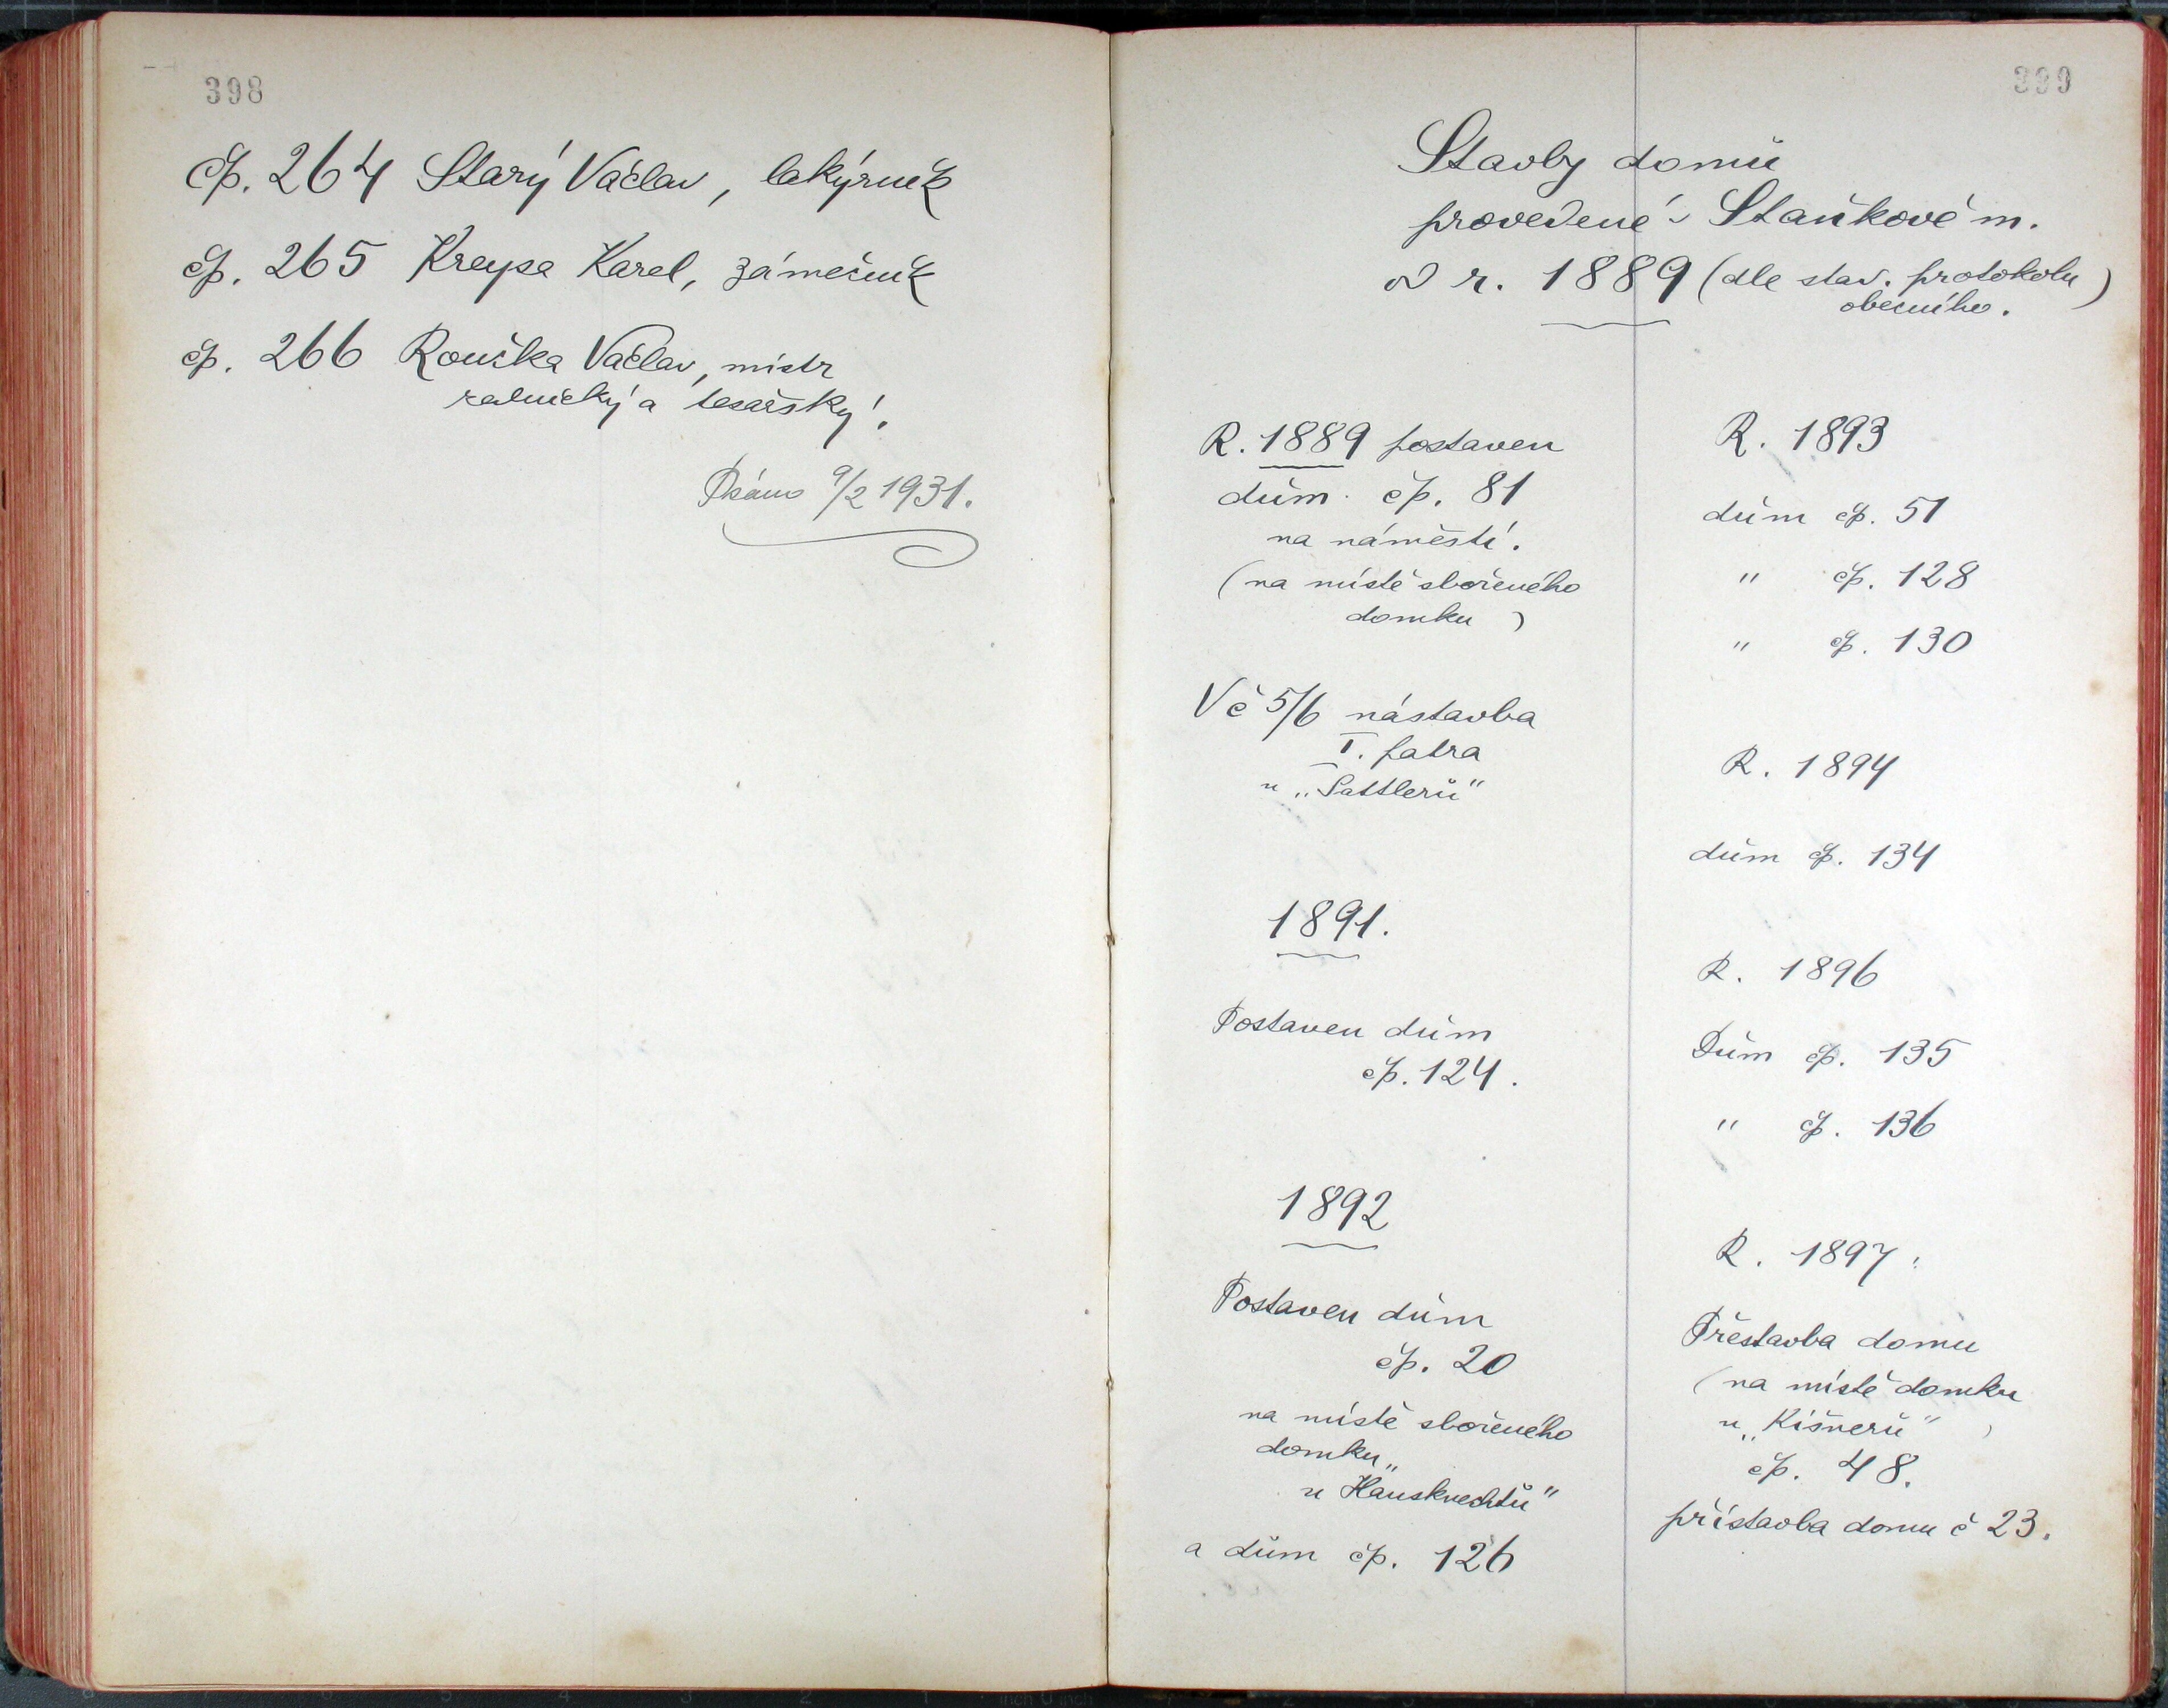 398
Čp. 264 Starý Václav, lakýrník
čp. 265 Kreysa Karel, zámečník
čp. 266 Rouška Václav, mistr
zednický a tesařský.
Psáno 9/2 1931.
399
Stavby domů
provedené v Staňkově m.
od r. 1889 (dle stav. protokolu
obecního.)
R. 1889 postaven
dům čp. 81
na náměstí.
(na místě sbořeného
domku)
V č 5/6 nástavba
I. patra
u „Sattlerů“
1891.
Postaven dům
čp. 124.
1892
Postaven dům
čp. 20
na místě sbořeného
domku
„u Hausknechtů“
a dům čp. 126
R. 1893
dům čp. 51
" čp. 128
" čp. 130
R. 1894
dům čp. 134
R. 1896
Dům čp. 135
" čp. 136
R. 1897.
Přestavba domu
(na místě domku
u „Kišnerů“)
čp. 48.
přístavba domu č 23.